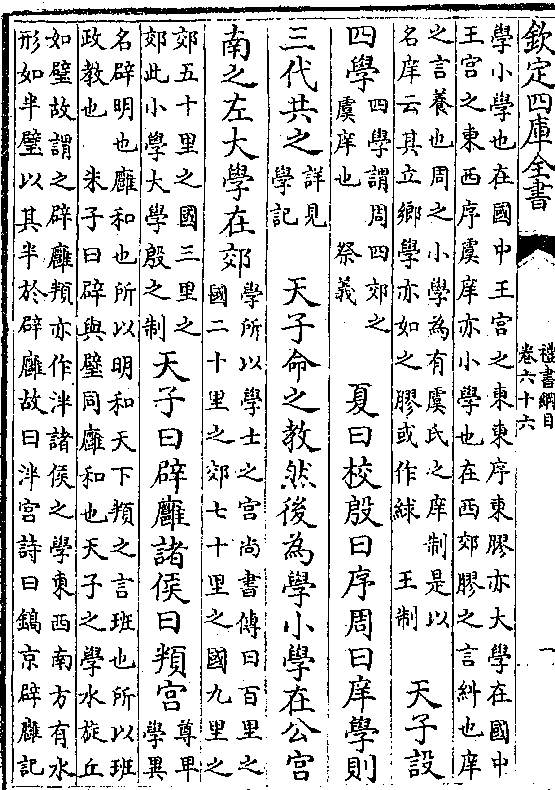 欽定四庫全書
禮書綱目
卷六十六
一
學小學也在國中王宮之東東序東膠亦大學在國中
王宮之東西序虞庠亦小學也在西郊膠之言糾也庠
之言養也周之小學為有虞氏之庠制是以
名庠云其立鄉學亦如之膠或作絿 王制
天子設
四學
四學謂周四郊之
虞庠也 祭義
夏曰校殷曰序周曰庠學則
三代共之
詳見
學記
天子命之教然後為學小學在公宮
南之左大學在郊
學所以學士之宮尚書傳曰百里之
國二十里之郊七十里之國九里之
郊五十里之國三里之
郊此小學大學殷之制
天子曰辟廱諸侯曰頖宮
尊卑
學異
名辟明也廱和也所以明和天下頖之言班也所以班
政教也 朱子曰辟與璧同廱和也天子之學水旋丘
如璧故謂之辟廱頖亦作泮諸侯之學東西南方有水
形如半璧以其半於辟廱故曰泮宮詩曰鎬京辟廱記